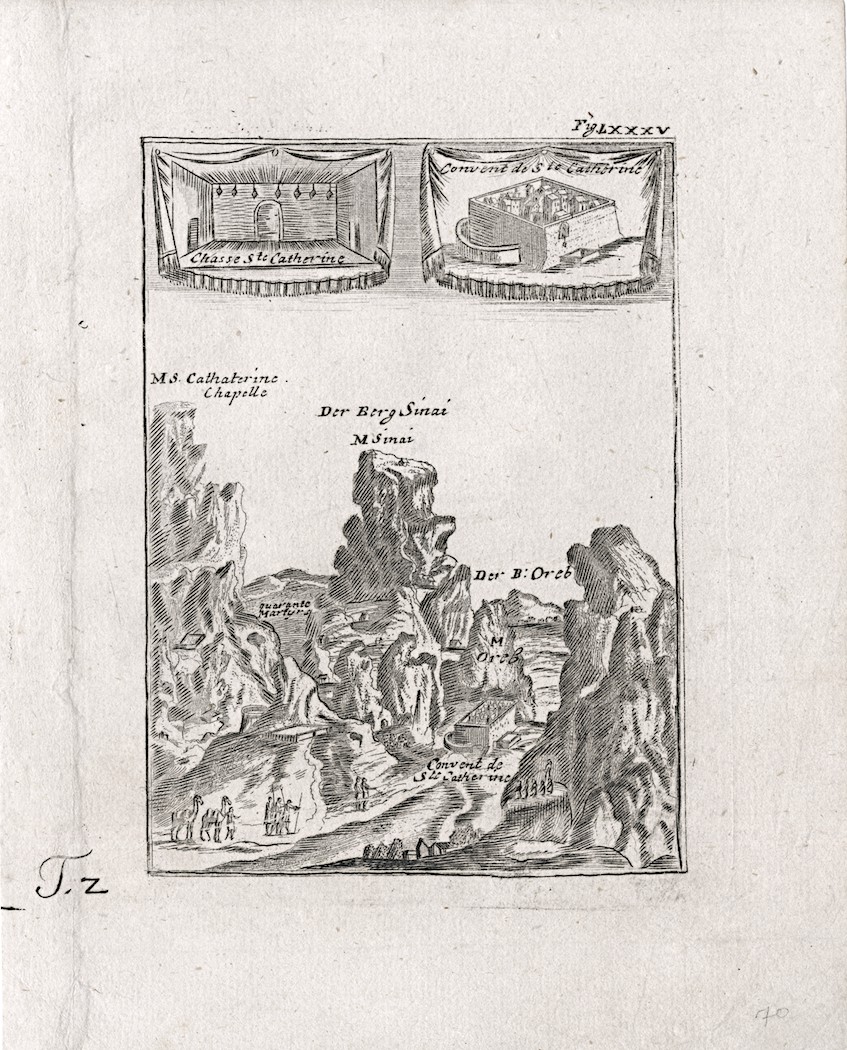 Fig. LXXXV
Chasse Ste Catherine
Convent de Ste Catherine
M S. Cathaterine.
Chapelle
Der Berg Sinai
M Sinai
Der B: Oreb
quarante
Martyrs
M
Oreb
Convent de
Ste Catherine
T. 2
70